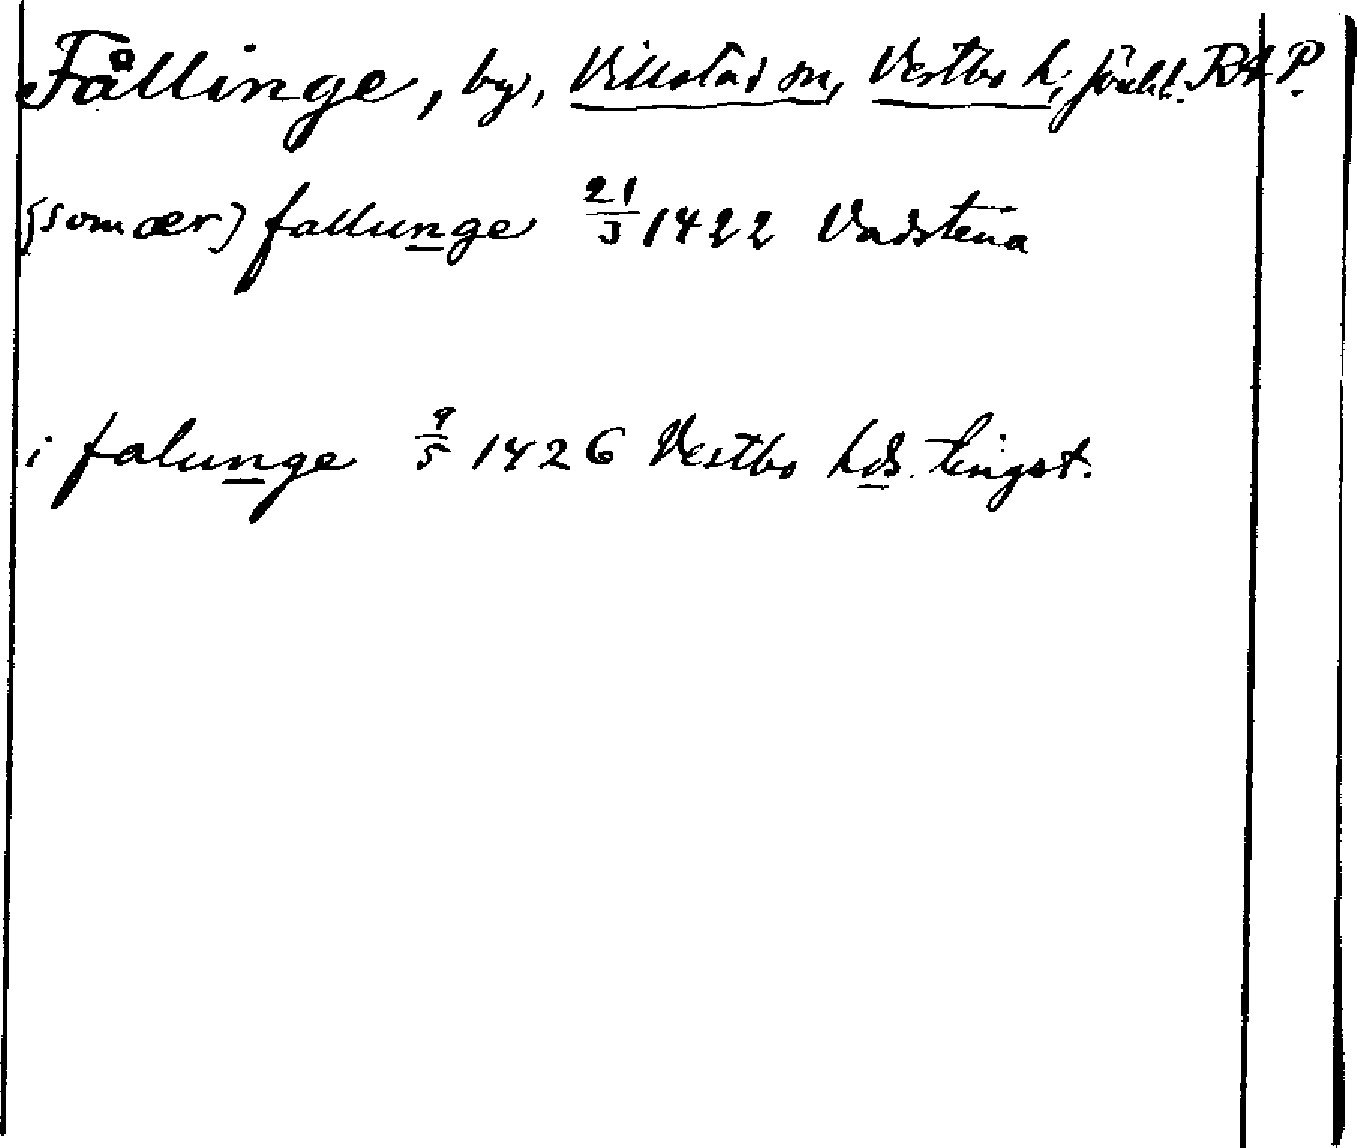 Fållinge, by, Villstad sn, Vestbo h, Jönk l. RAP.
(som ær) fallunge 21/3 1422 Vadstena
i falunge 9/5 1426 Vestbo hds tingst.